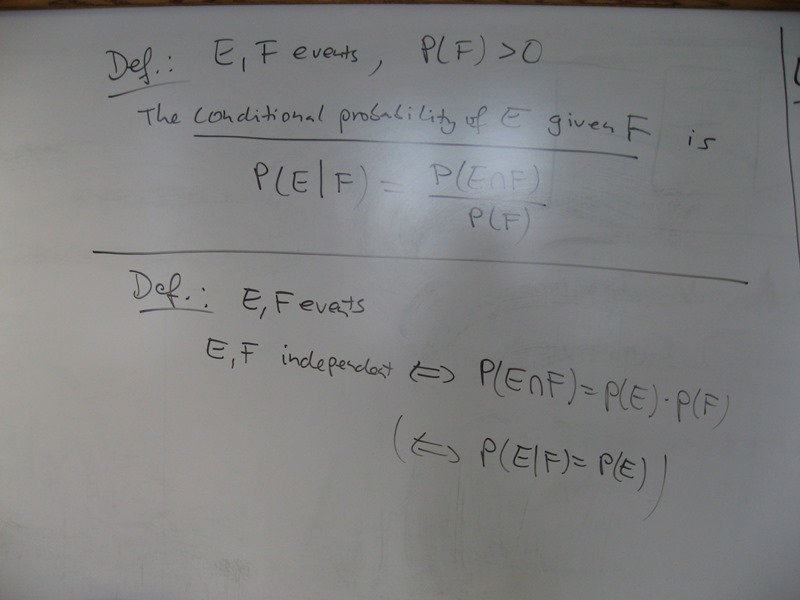 Def.: E, F events, P(F) > 0
The conditional probability of E given F is
P(E|F) = P(E∩F) / P(F)
Def.: E, F events
E, F independent ⇔ P(E∩F) = P(E) · P(F)
(⇔ P(E|F) = P(E))